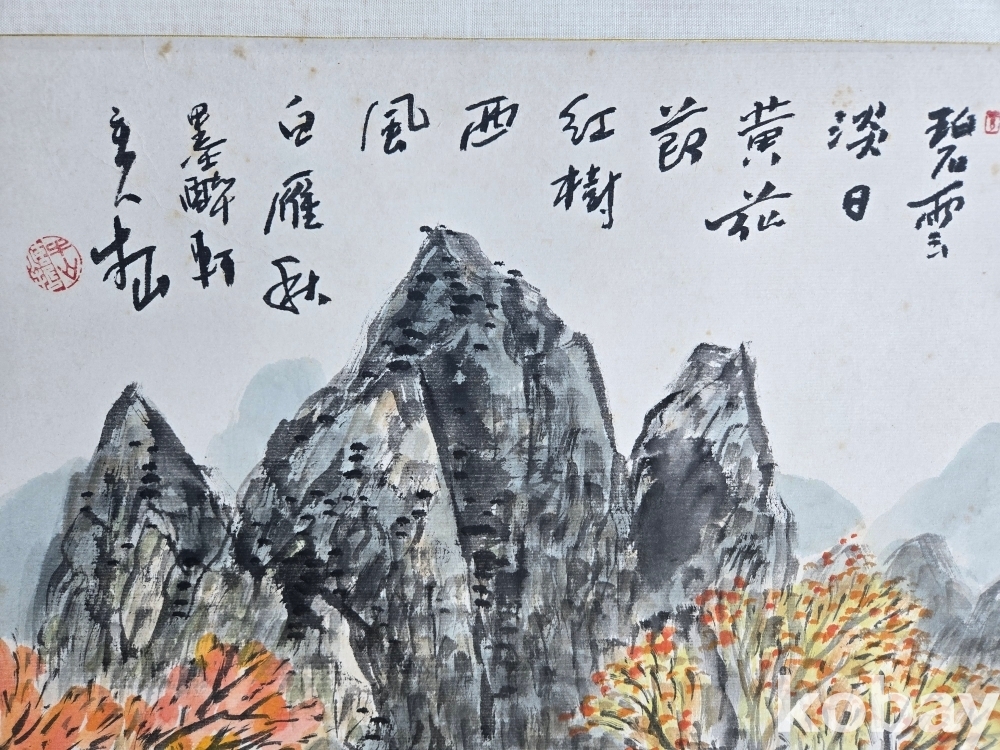 碧雲
淡日
黃花
節
紅樹
西
風
白雁秋
墨醉軒
主人
kobay